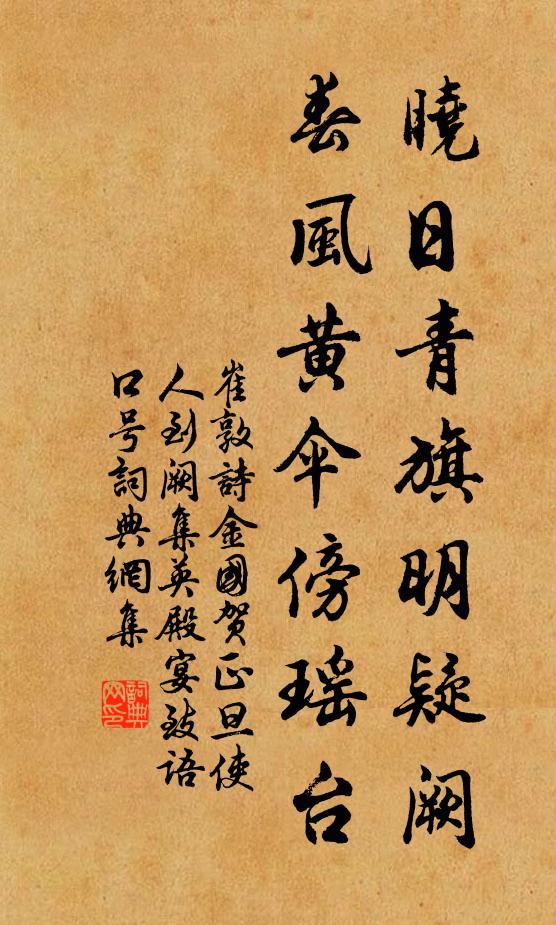 曉日青旗明疑阙
春風黄伞傍瑶台
崔敦詩金國贺正旦使
人到阙集英殿宴致語
口号詞典網集
詞典
网印